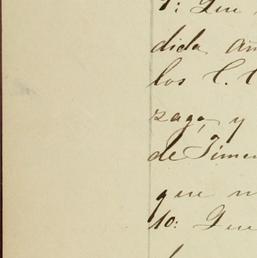 9: Que
dida am
los C. C
zaga, y
de Timen
que m
10: Que